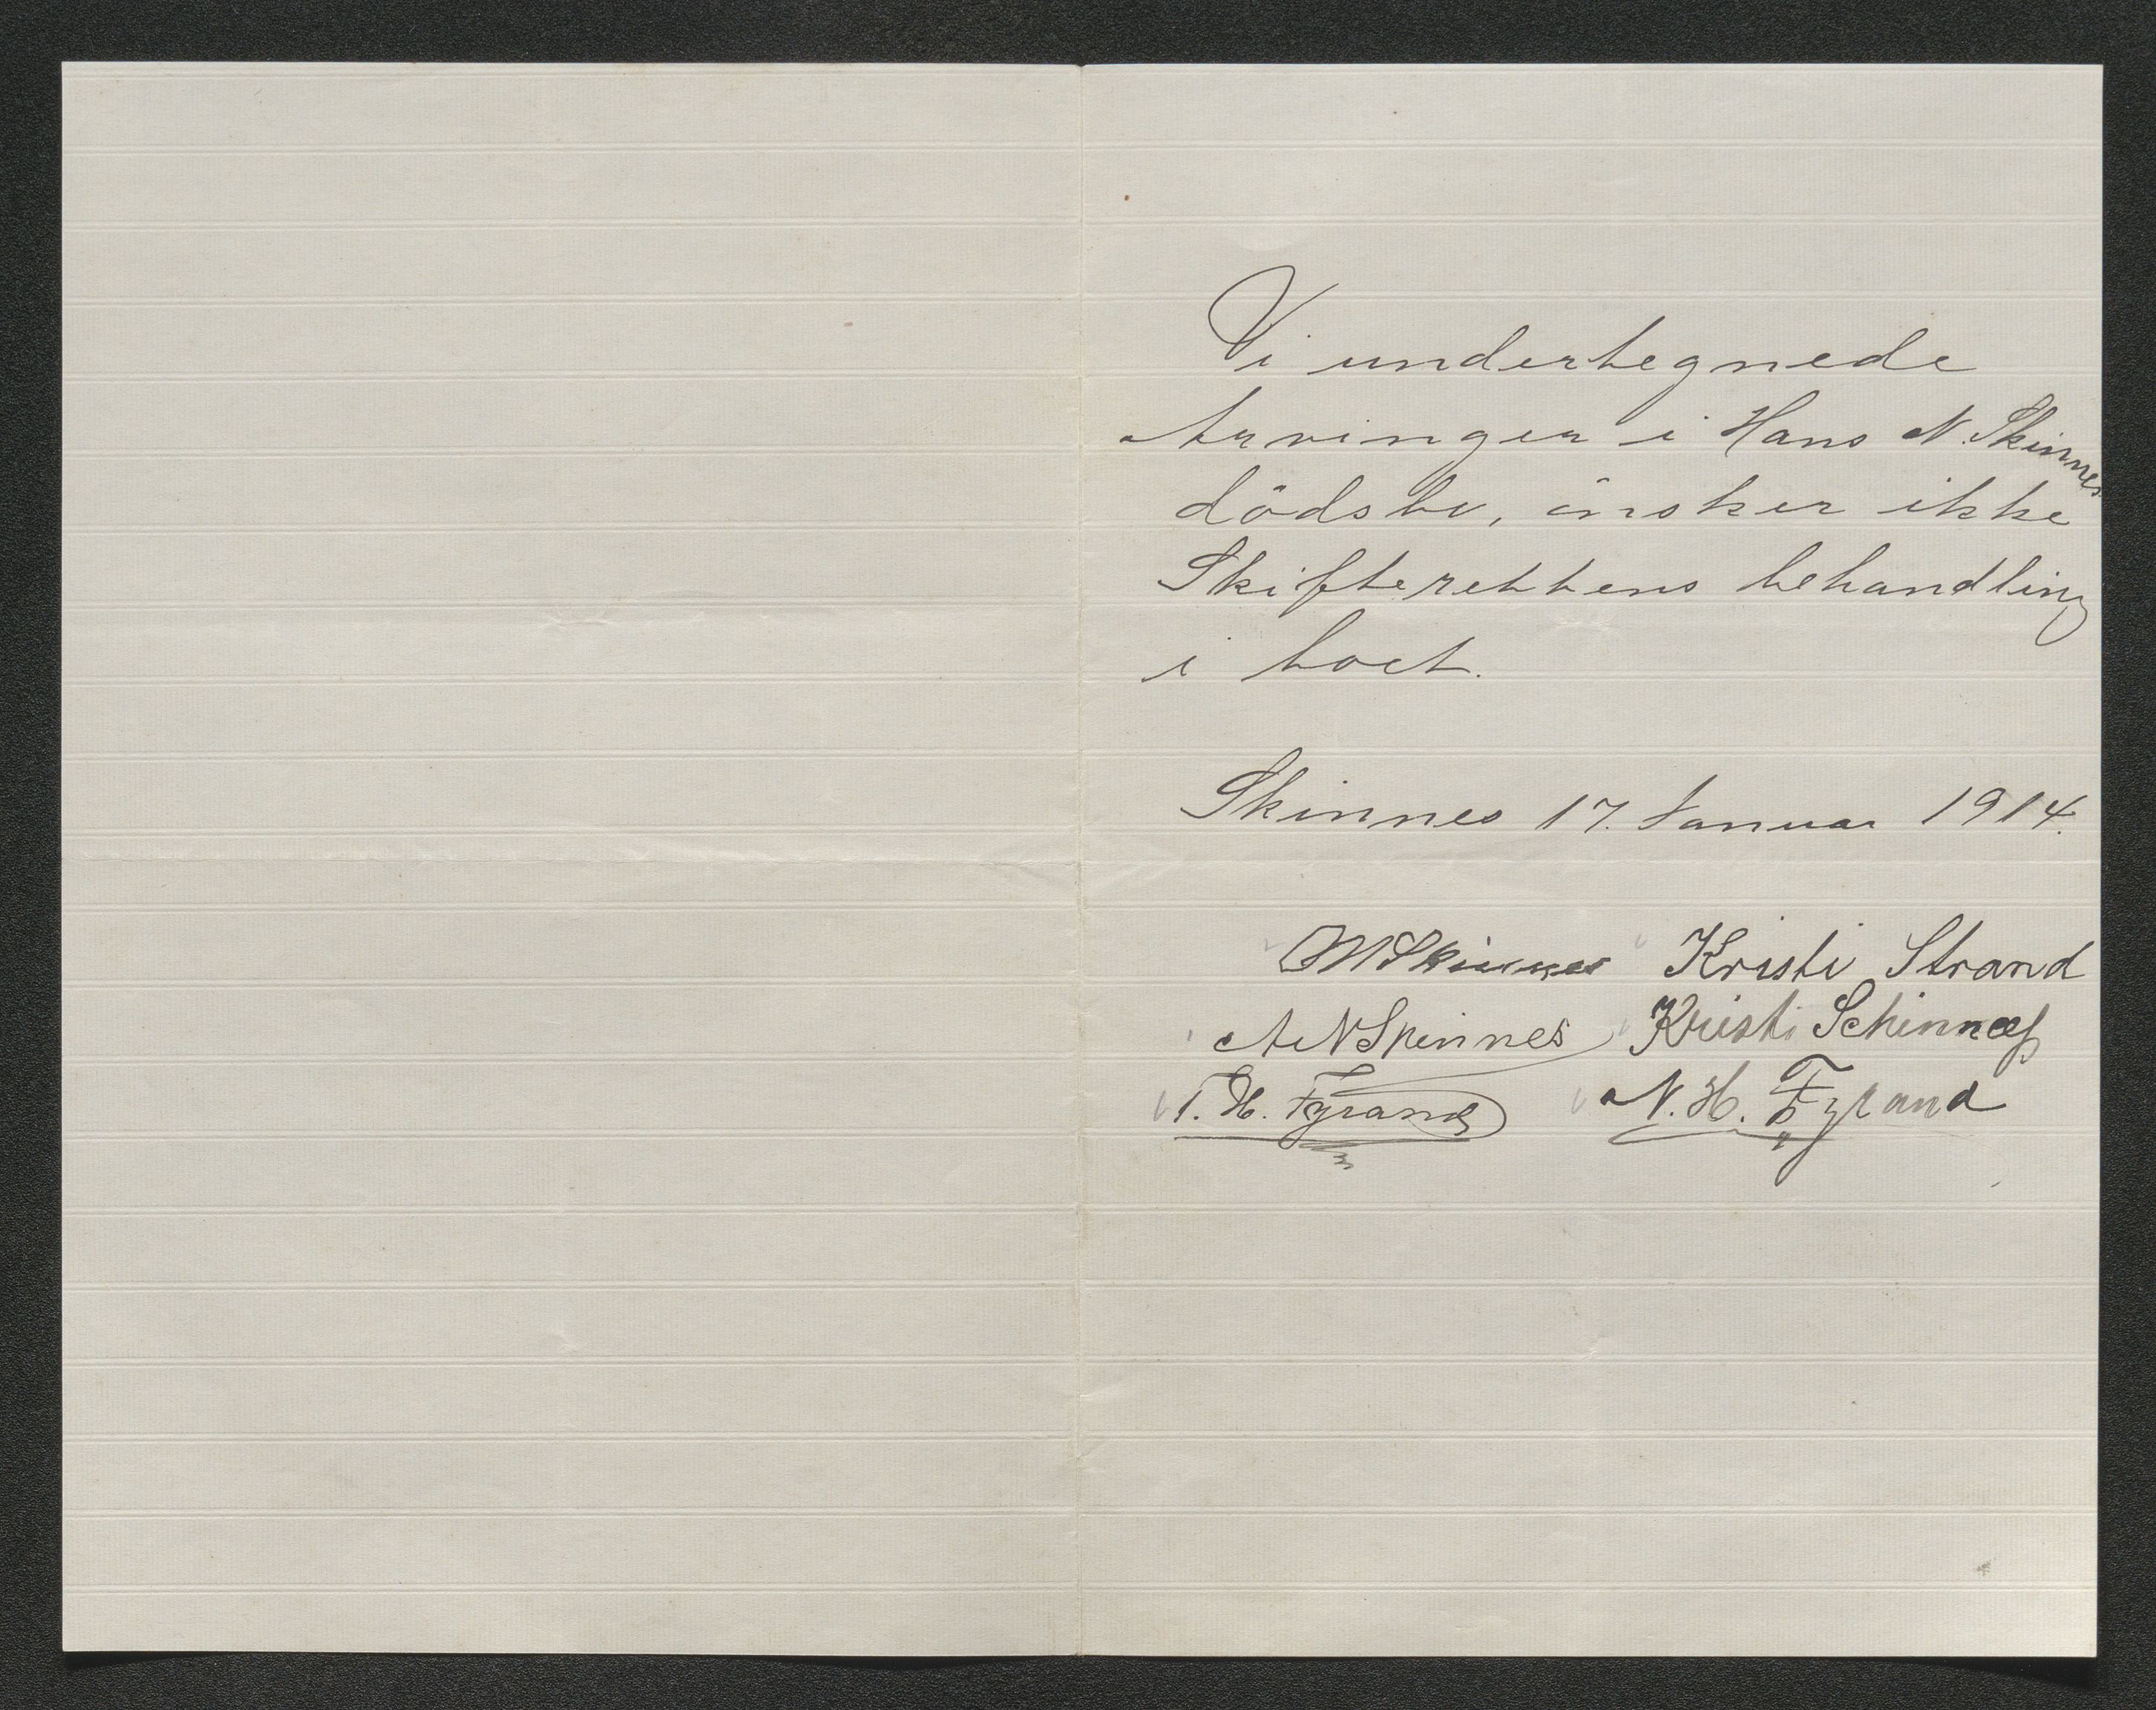 Vi undertegnede
Arvinger i Hans N. Skinnes
dödsbo, önsker ikke
Skifterettens behandling
i boet.
Skinnes 17. Januar 1914.
Skinnes Kristi Strand
A N Skinnes Kristi Schinnæs
T. H. Fyrand N. H. Fyrand